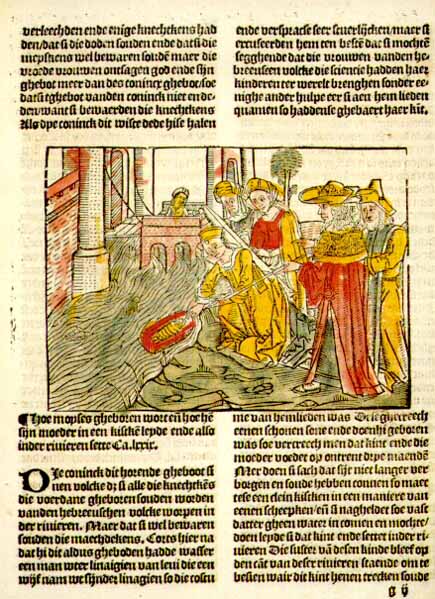 verleechden ende enige knechtkens had
den/dat si die doden souden ende dat si die
meyskens wel bewaren soudē maer die
vroede vrouwen ontsagen god ende sijn
ghebot meer dan des coninc ghebot/soe
dat si tghebot vanden coninck niet en de-
den/want si bewaerden die knechtkens
Als dye coninck dit wiste dede hise halen
ende verspracse seer scuerlijcken/maer si
excuseerden hem ten bestē dat si mochtē
segghende dat die vrouwen vanden he-
breeuschen volcke die sciencie hadden haer
kinderen ter werelt brenghen sonder ee-
nighe ander hulpe eer si aen hem lieden
quamen so haddense ghebaert haer kīt.
¶ Hoe moyses gheboren wort eñ hoe hē
sijn moeder in een kistkē leyde ende also
inder rivieren sette Ca.lxxx.
Die coninck dit horende gheboot si
nen volcke dz si alle die knechtkēs
die voerdane gheboren souden worden
vanden hebreeuschen volcke worpen in
der rivieren. Maer dat si wel bewaren
souden die maechdekens. Cortes hier na
dat hi dit aldus gheboden hadde wasser
een man wter linaigien van levi die een
wijf nam wt sijnder linagien so die costu
me van hemlieden was Dese ghecreech
eenen schonen sone ende doen hi geboren
was soe vercreech men dat kint ende die
moeder voedet op ontrent drye maendē
Mer doen si sach dat sijt niet langer ver
borgen en soude hebben connen so maec
tese een clein kistken in een maniere van
eenen scheepken/eñ si nagheldet soe vast
datter gheen water in comen en mochte/
doen leyde si dat kint ende settet inder ri-
vieren Die suster vā desen kinde bleef op
den cāt van deser rivieren staende om te
besien waer dit kint henen trecken soude
g ij